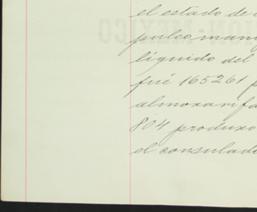 el estado de
pulco mani
liquido del
fué 165261 p
almoxarifa
804 produxo
el consulado